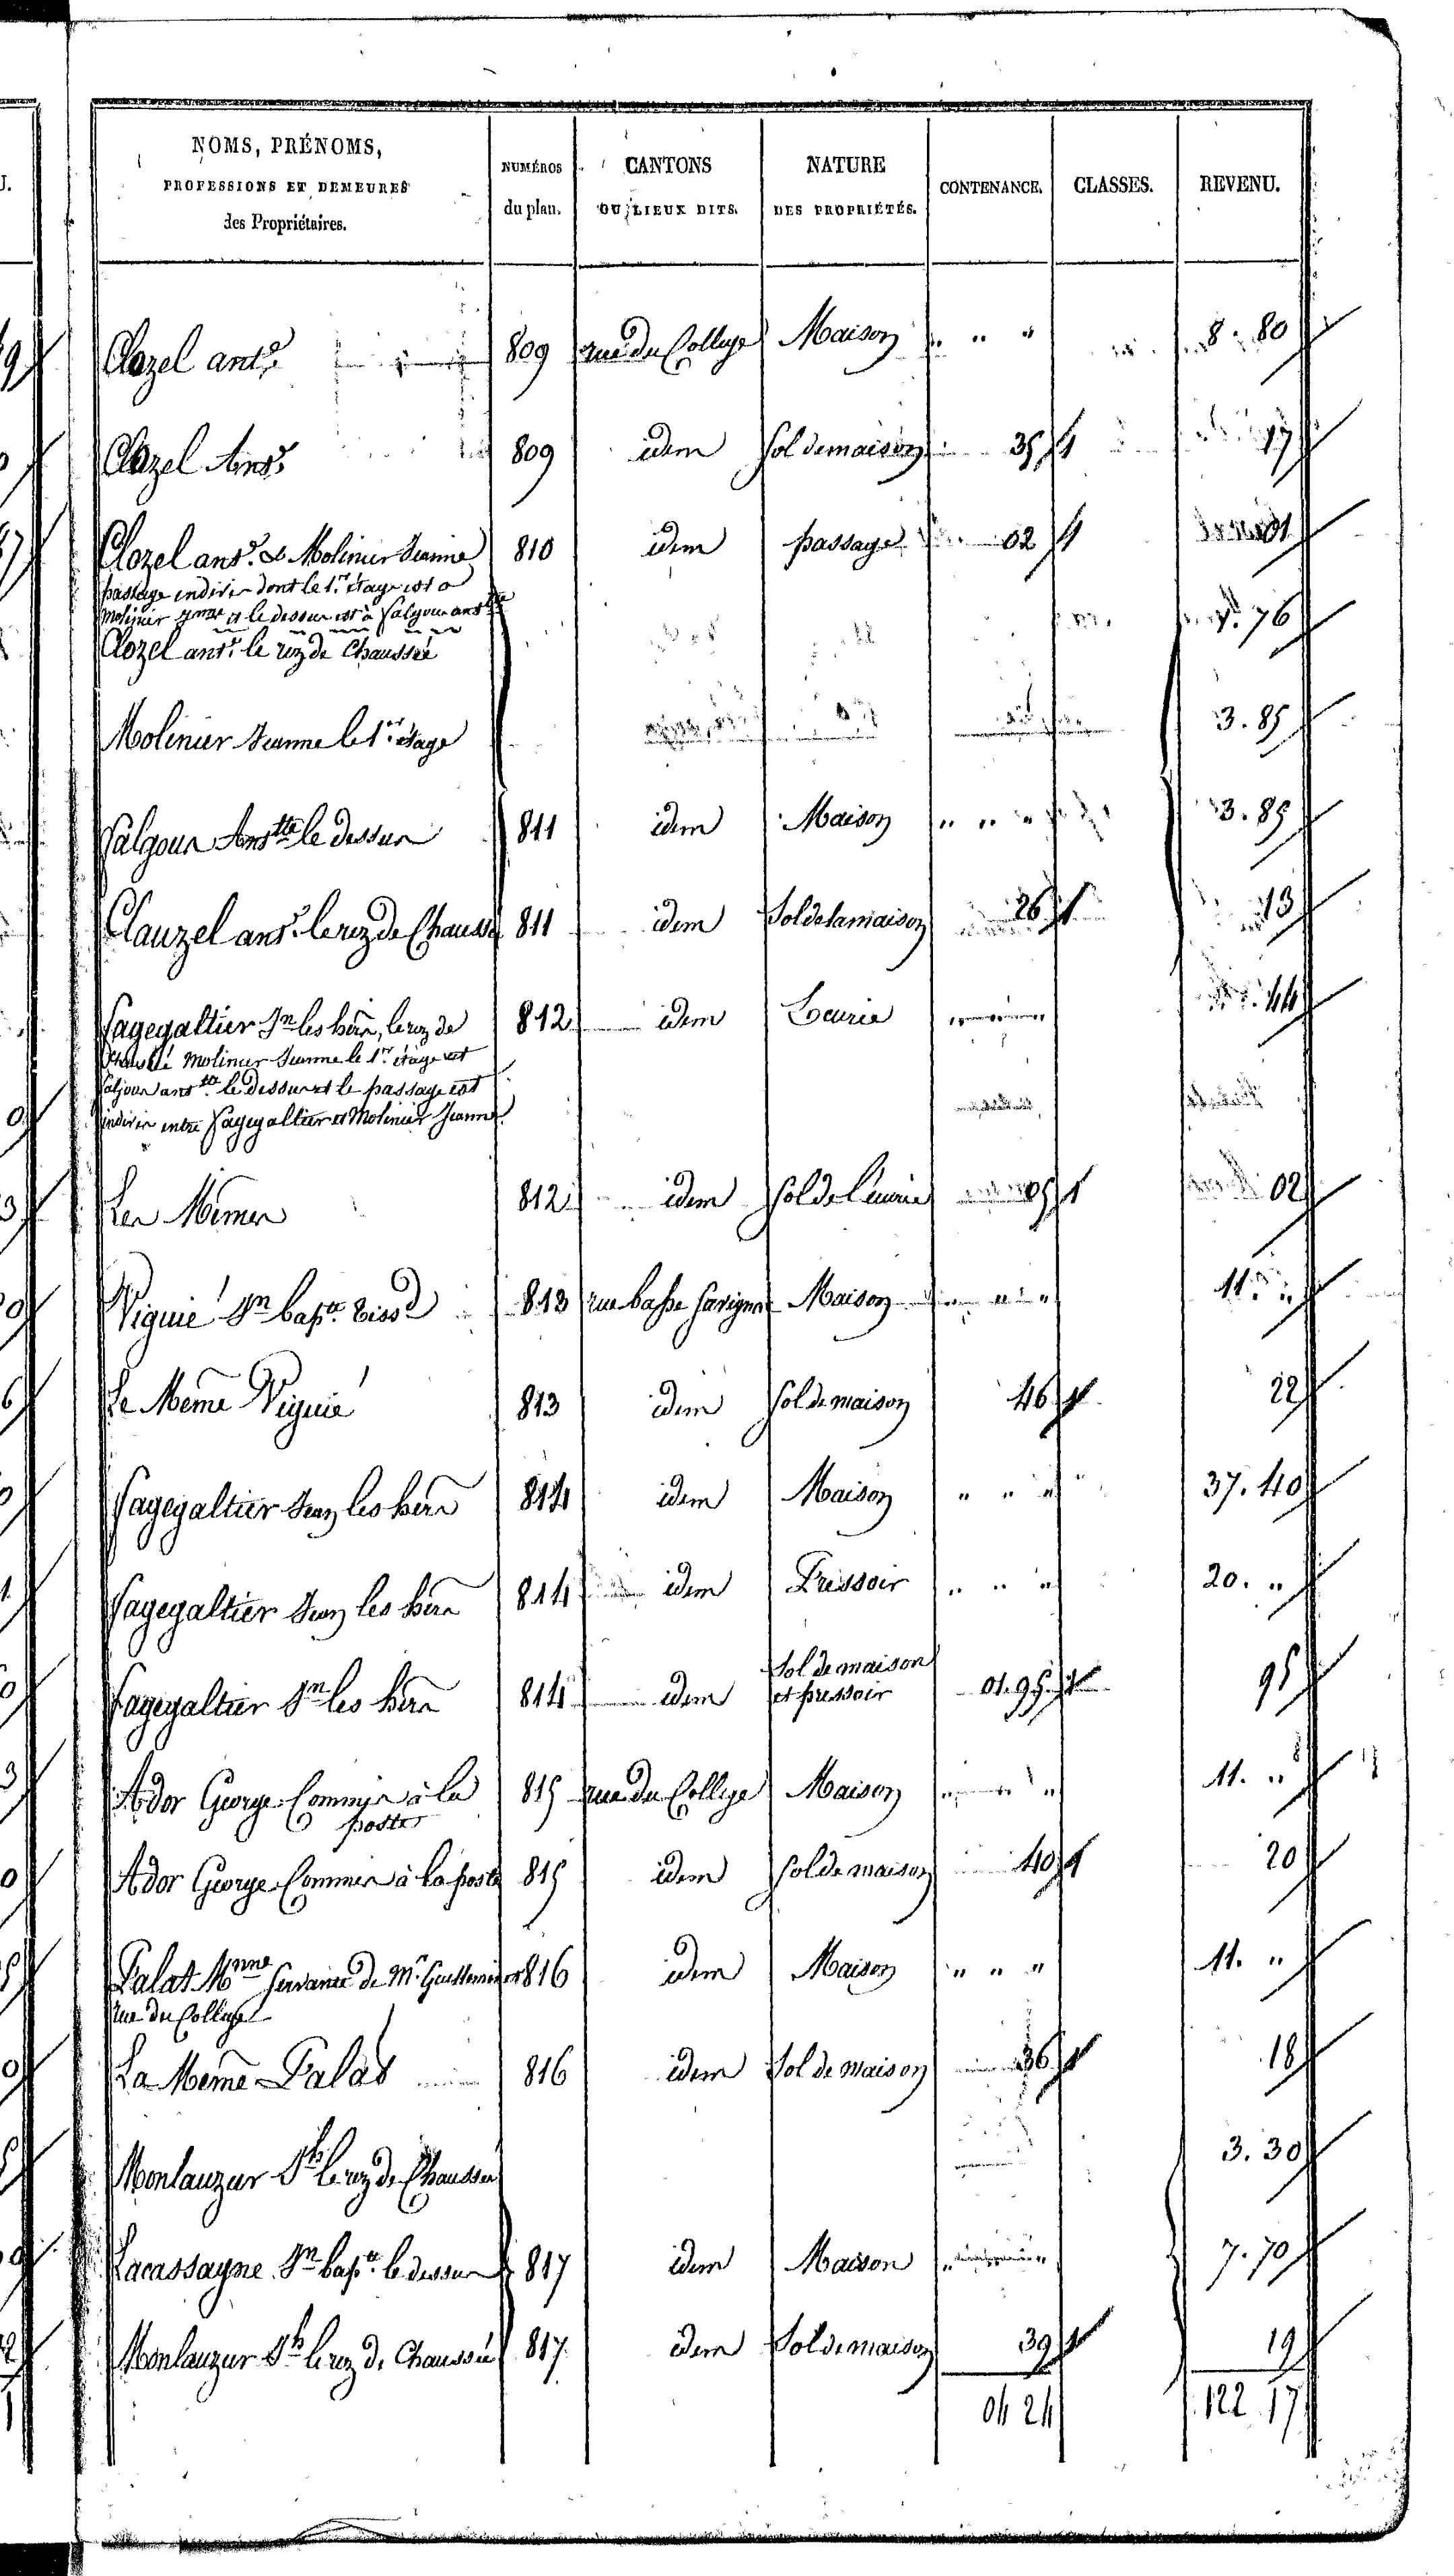 NOMS, PRÉNOMS, PROFESSIONS ET DEMEURES des Propriétaires. NUMÉROS du plan. CANTONS OU LIEUX DITS. NATURE DES PROPRIÉTÉS. CONTENANCE. CLASSES. REVENU.
Clozel ant.e 809 rue du College Maison " " " 8. 80
Clozel Ant.e 809 idem Sol de maison 35 1 17
Clozel ant.e & Molinier Jeanne 810 idem passage 02 1 01
passage indivis dont le 1.er étage est a
Molinier Jnne et le dessus est à Salgues anttte
Clozel ant.e le rez de Chaussée 7. 76
Molinier Jeanne le 1.er étage 3. 85
Salgues Anttte le dessus 811 idem Maison " " " 3. 85
Clauzel ant.e le rez de Chaussée 811 idem Sol de la maison 26 1 13
Fagegaltier Jn les hérs, le rez de 812 idem Ecurie 44
Chaussée Molinier Jeanne le 1.er étage et
anttte le dessus et le passage est
indivis entre Fagegaltier et Molinier Jeanne
Les Mêmes 812 idem Sol de l'écurie 05 1 02
Viguié Jn bapte tissd 813 rue basse Savignac Maison " " " 11. "
Le Même Viguié 813 idem Sol de maison 46 1 22
Fagegaltier Jean les hérs 814 idem Maison " " " 37. 40
Fagegaltier Jean les hérs 814 idem Pressoir " " " 20. "
Fagegaltier Jn les hérs 814 idem Sol de maison et pressoir 01. 95 1 95
Ador George Commis à la poste 815 rue du College Maison " " " 11. "
Ador George Commis à la poste 815 idem Sol de maison 40 1 20
Palat Mnne Servante de Mr 816 idem Maison " " " 11. "
rue du College
La Même Palat 816 idem Sol de maison 36 1 18
Monlauzur Jh le rez de Chaussée 3. 30
Lacassagne Jn bapte le dessus 817 idem Maison 7. 70
Monlauzur Jh le rez de Chaussée 817 idem Sol de maison 39 1 19
04 24 122. 17